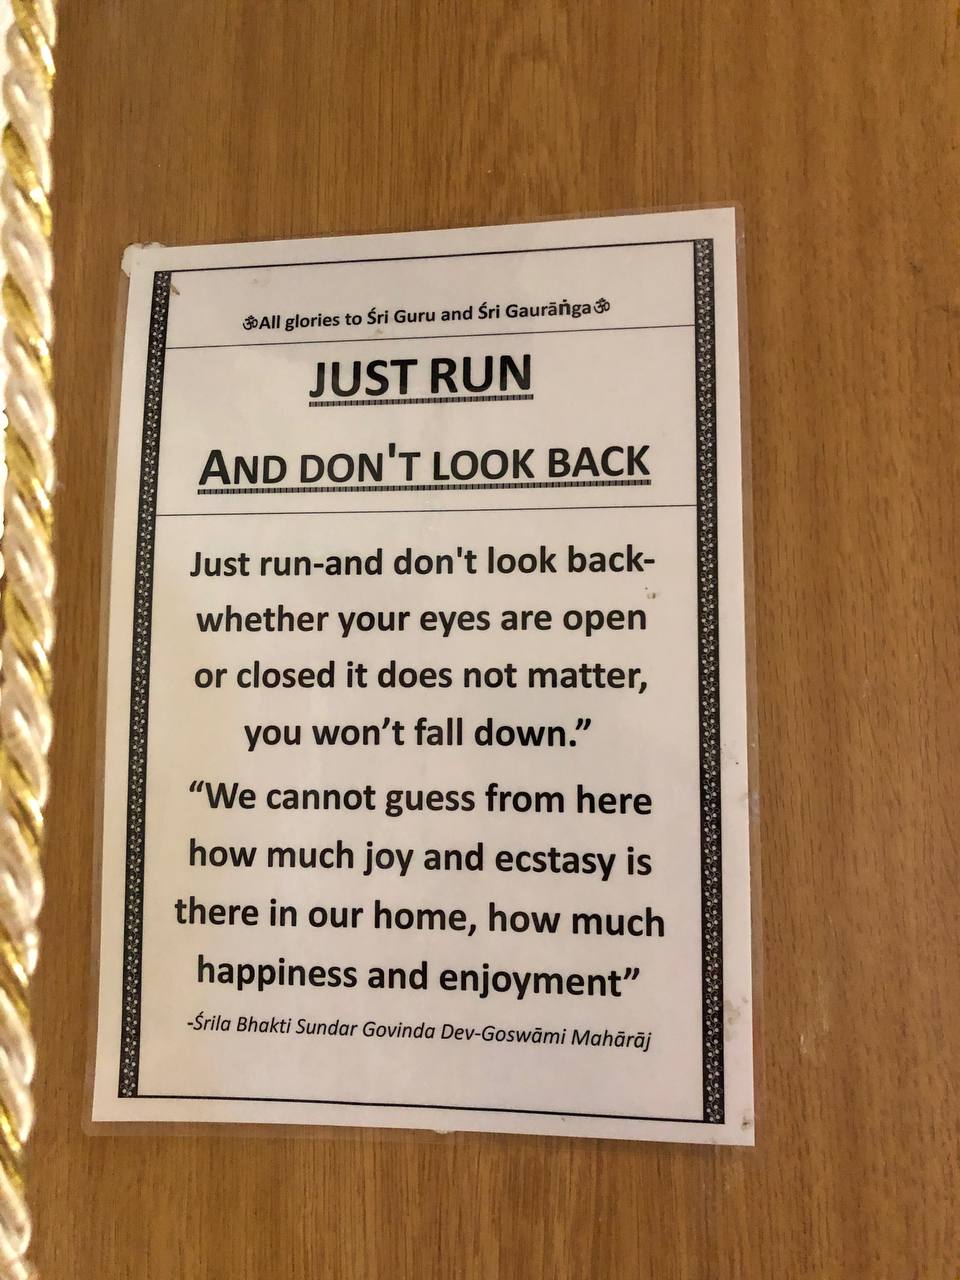 ॐAll glories to Śri Guru and Śri Gaurāṅgaॐ
JUST RUN
AND DON'T LOOK BACK
Just run-and don't look back-
whether your eyes are open
or closed it does not matter,
you won’t fall down.”
“We cannot guess from here
how much joy and ecstasy is
there in our home, how much
happiness and enjoyment”
-Śrila Bhakti Sundar Govinda Dev-Goswāmi Mahārāj